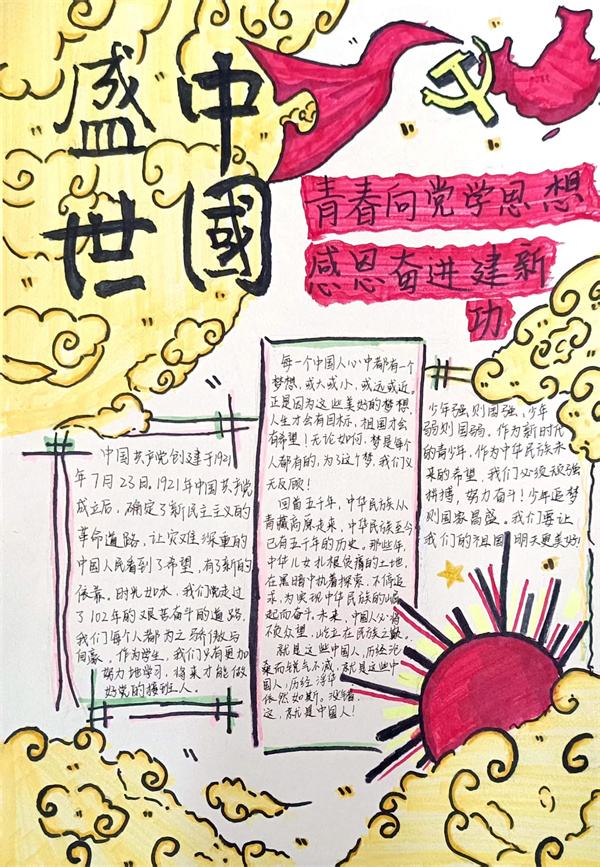 盛世
中國
青春向党学思想
感恩奋进建新
功
中国共产党创建于1921
年7月23日,1921年中国共产党
成立后,确定了新民主主义的
革命道路,让灾难深重的
中国人民看到了希望,有了新的
依靠。时光如水,我们党走过
了102年的艰苦奋斗的道路,
我们每个人都为之骄傲与
自豪。作为学生,我们只有更加
努力地学习,将来才能做
好党的接班人。
每一个中国人心中都有一个
梦想,或大或小,或远或近。
正是因为这些美好的梦想,
人生才会有目标,祖国才会
有希望!无论如何,梦是每个
人都有的,为了这个梦,我们义
无反顾!
回首五千年,中华民族从
青藏高原走来,中华民族至今
已有五千年的历史。那些年,
中华儿女扎根贫瘠的土地,
在黑暗中执着探索,不停追
求,为实现中华民族的崛
起而奋斗,未来,中国人必将
不负众望,屹立在民族之巅。
就是这些中国人,历经沧
桑而锐气不减,就是这些中
国人,历经浮华
依然如斯。没错,
这,就是中国人!
少年强,则国强,少年
弱则国弱。作为新时代
的青少年,作为中华民族未
来的希望,我们必须顽强
拼搏,努力奋斗!少年逐梦
则国家昌盛。我们要让
我们的祖国明天更美好!